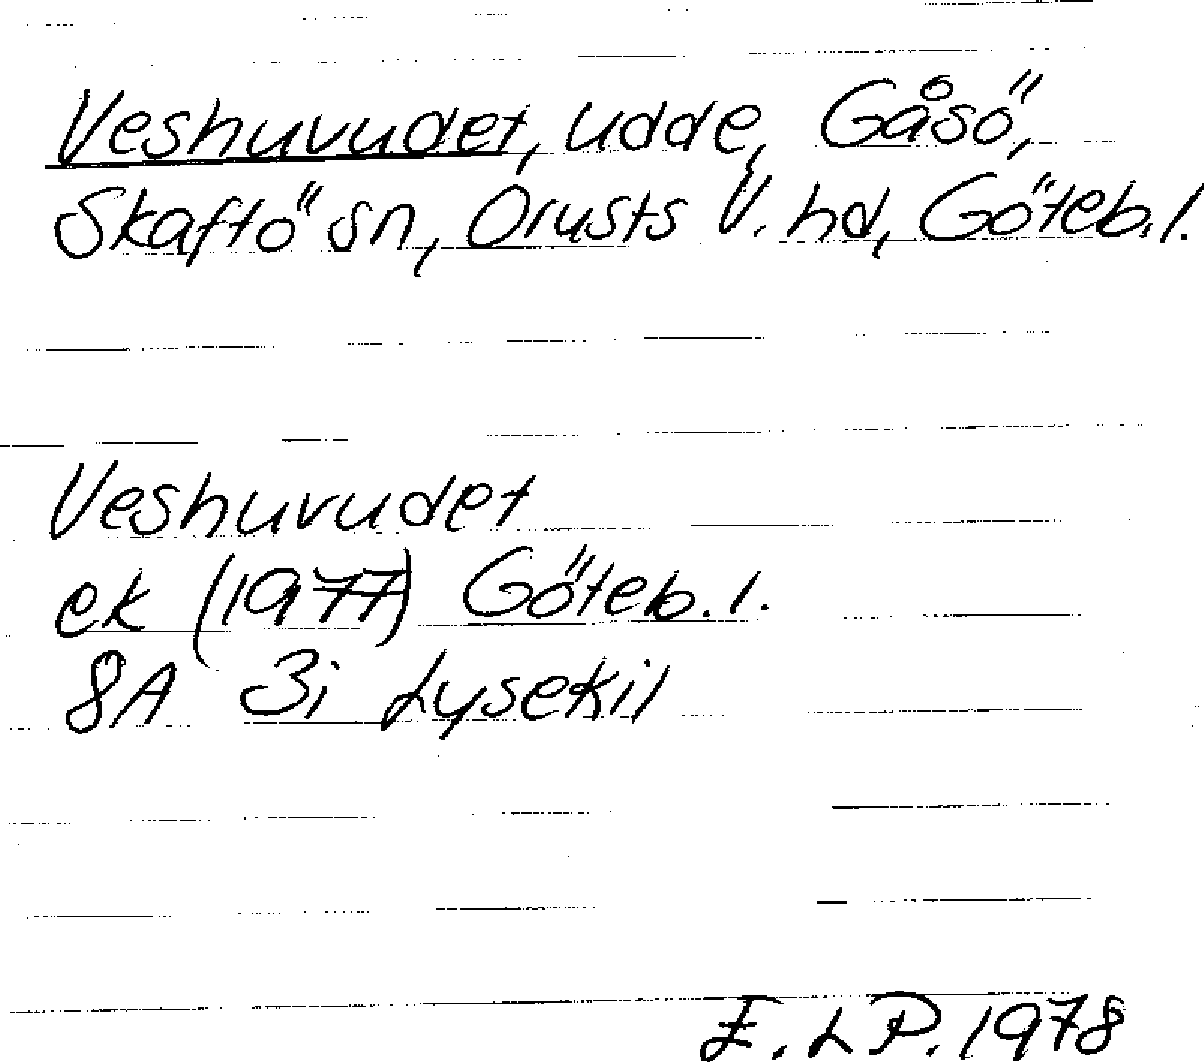 Veshuvudet, udde, Gåsö,
Skaftö sn, Orusts V. hd, Göteb.l.
Veshuvudet
ek (1977) Göteb.l.
8A 3i Lysekil
E.LP.1978